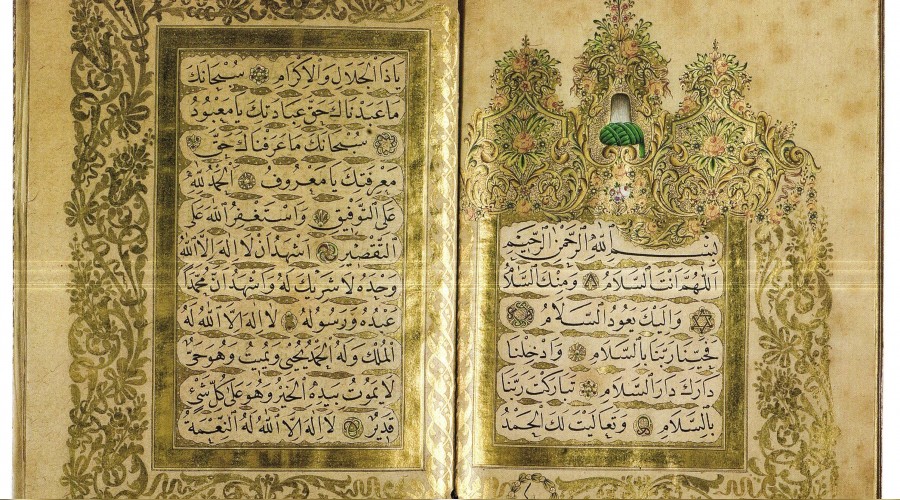 بِسْــمِ اللهِ الرَّحْمٰنِ الرَّحِيمِ
اَللّٰهُمَّ اَنْتَ السَّلَامُ وَمِنْكَ السَّلَامُ
وَاِلَيْكَ يَعُودُ السَّلَامُ
فَحَيِّنَا رَبَّنَا بِالسَّلَامِ وَاَدْخِلْنَا
دَارَكَ دَارَ السَّلَامِ تَبَارَكْتَ رَبَّنَا
بِالسَّلَامِ وَتَعَالَيْتَ لَكَ الْحَمْدُ
يَاذَا الْجَلَالِ وَالْاِكْرَامِ سُبْحَانَكَ
مَاعَبَدْنَاكَ حَقَّ عِبَادَتِكَ يَامَعْبُودُ
سُبْحَانَكَ مَاعَرَفْنَاكَ حَقَّ
مَعْرِفَتِكَ يَامَعْرُوفُ اَلْحَمْدُ لِلّٰهِ
عَلَى التَّوْفِيقِ وَاَسْتَغْفِرُ اللهَ عَلَى
التَّقْصِيرِ اَشْهَدُ اَنْ لَا اِلٰهَ اِلَّا اللهُ
وَحْدَهُ لَا شَرِيكَ لَهُ وَاَشْهَدُ اَنَّ مُحَمَّدًا
عَبْدُهُ وَرَسُولُهُ لَا اِلٰهَ اِلَّا اللهُ لَهُ
الْمُلْكُ وَلَهُ الْحَمْدُ يُحْيِي وَيُمِيتُ وَهُوَ حَيٌّ
لَا يَمُوتُ بِيَدِهِ الْخَيْرُ وَهُوَ عَلَى كُلِّ شَيْءٍ
قَدِيرٌ لَا اِلٰهَ اِلَّا اللهُ لَهُ النِّعْمَةُ